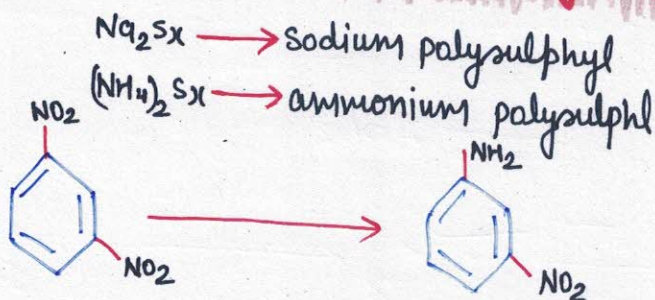 Na₂Sx → Sodium polysulphyl
(NH₄)₂Sx → ammonium polysulphl
NO₂
NH₂
NO₂
NO₂